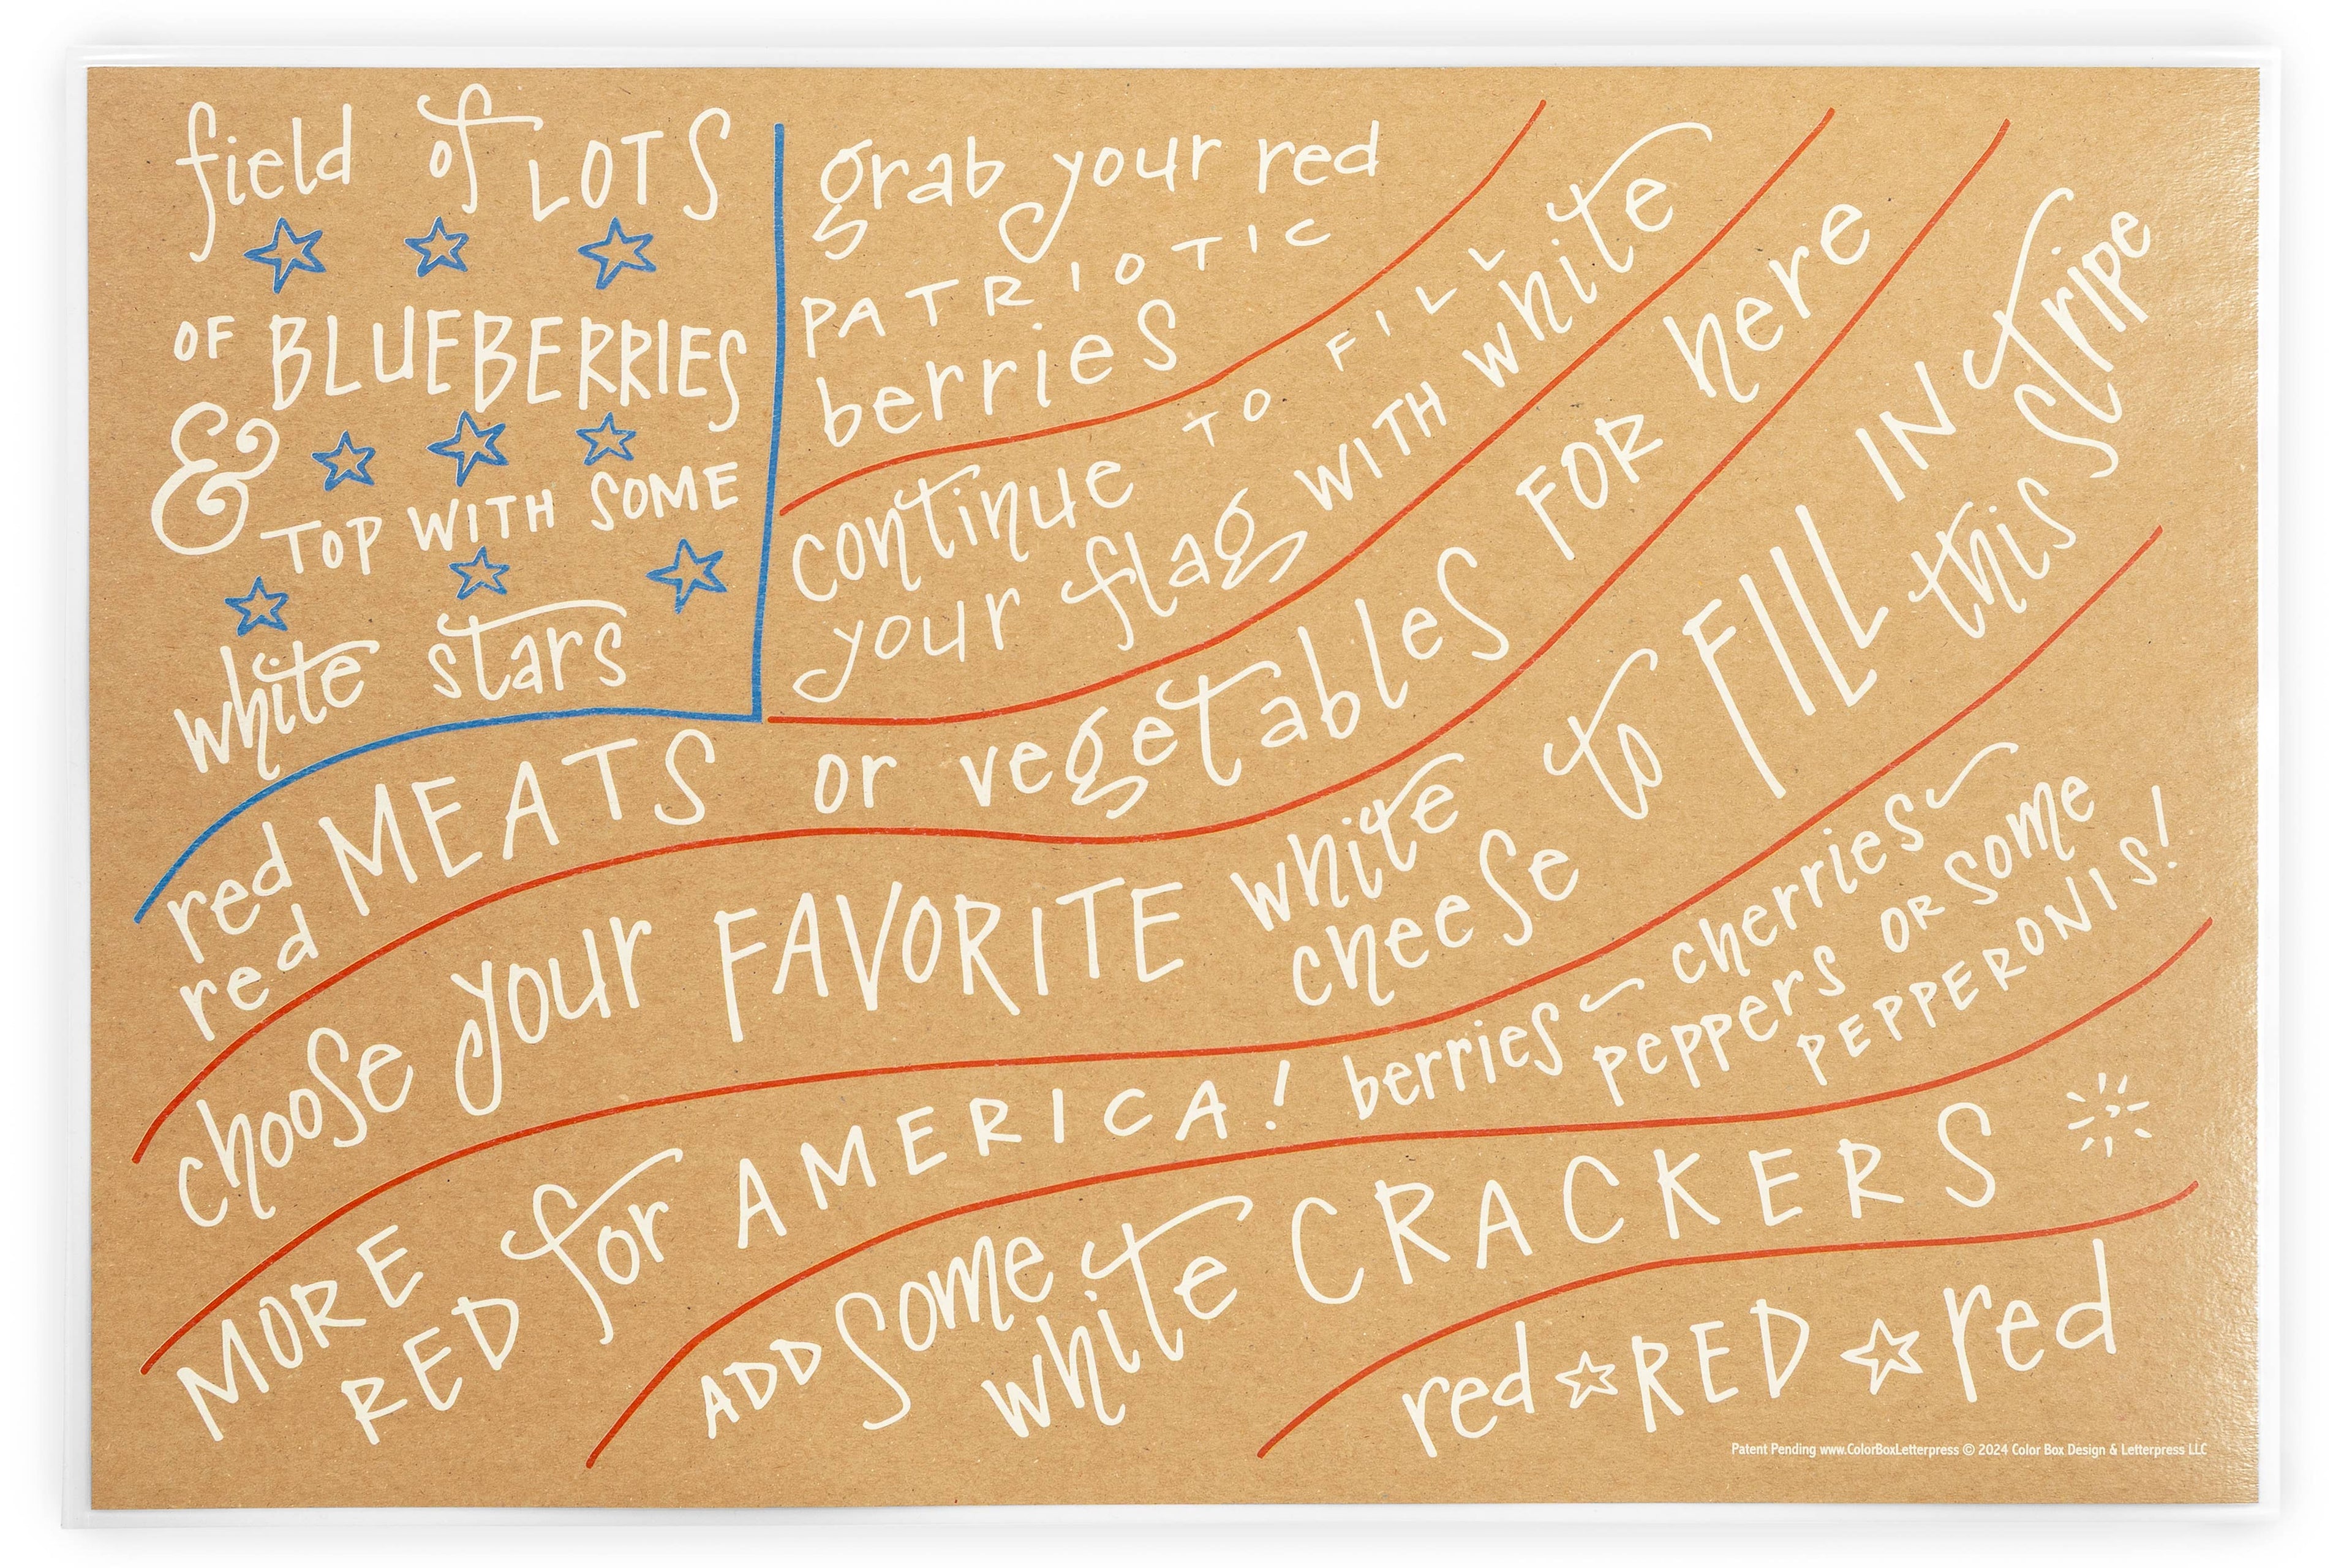 field of LOTS
OF BLUEBERRIES
& TOP WITH SOME
white stars
grab your red
PATRIOTIC
berries
continue TO FILL
your flag WITH white
red MEATS or vegetables FOR here
red
choose your FAVORITE white
cheese to FILL IN
this stripe
MORE
RED for AMERICA! berries ~ cherries ~
peppers OR some
PEPPERONIS!
ADD some
white CRACKERS
red ☆ RED ☆ red
Patent Pending www.ColorBoxLetterpress © 2024 Color Box Design & Letterpress LLC